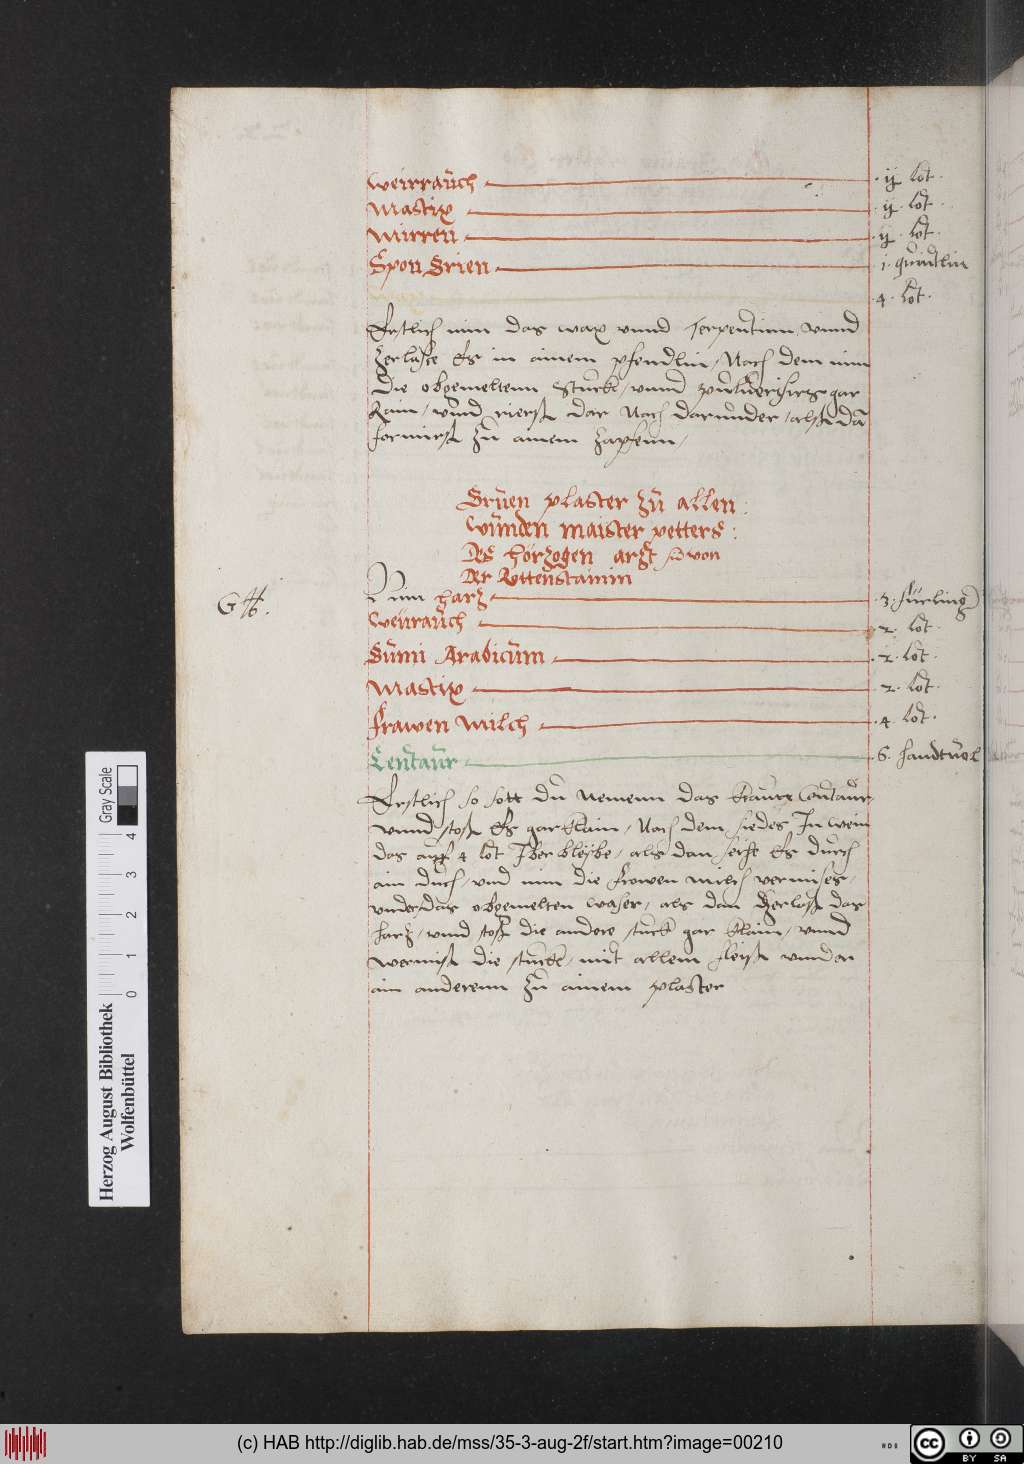 weirrauch . ij . lot .
mastix . ij . lot .
mirren . ij . lot .
Spon Grien . 1 . quindtlin
. 4 . lot .
Erstlich nim das wax vnnd Terpentinn vnnd
Zerlasse Es in ainem pfendlin / Nach dem nim
die obgemeltenn Stuckh / vnnd gar
Rain / vnnd rierß dar Nach darunder / alß dā
formirß zu ainem Zapfenn /
Gruen plaster zu allen :
wunden maister petters :
Des hörzogen arzt von
Der Rottenstainim
Nim harz . 3 . fürling
G
weirauch . 2 . lot .
Gumi Arabicum . 2 . lot .
mastix . 2 . lot .
frawen milch . 4 . lot .
Centaur . 6 . handtvol
Erstlich so sott du Nemenn das kraut Centaur
vnnd stoß Es gar klain / Nach dem siedes In wein
das auff 4 lot Iber bleybe / als dan seich Es durch
ain duch / vnd nim die frowen milch vermischs /
vnder das obgemelten waser / als dan Zerlaß das
harz / vnnd stoß die andere stuckh gar klain / vnnd
vermiß die stuckh / mit allem fleiß vnnder
ain anderenn zu ainem plaster
Gray Scale
0 1 2 3 4
Herzog August Bibliothek
Wolfenbüttel
(c) HAB http://diglib.hab.de/mss/35-3-aug-2f/start.htm?image=00210
CC BY SA